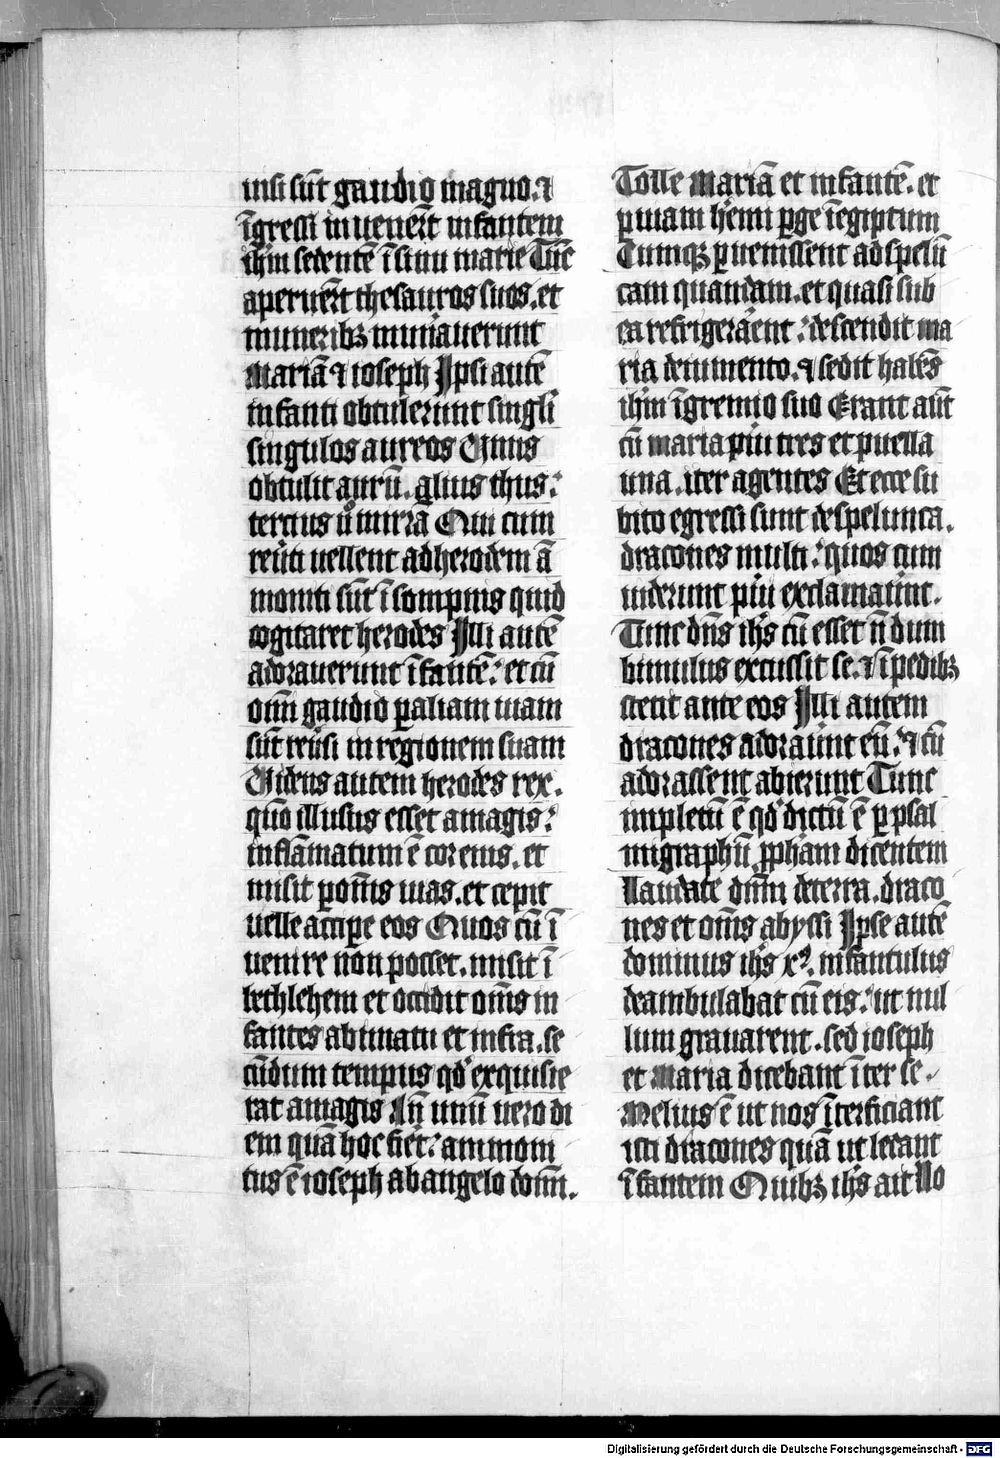 uisi sūt gaudio magno. ⁊
īgressi inuenerūt infantem
ihm̄ sedentē ī sinu marie Tūc
aperuerūt thesauros suos. et
muneribꝫ muniauerunt
Mariā ⁊ ioseph Ipsi autē
infanti obtulerunt singlī
singulos aureos Unus
obtulit aurū. alius thus:
tercius ů mirrā Qui cum
reūti uellent ad herodem ā
moniti sūt ī sompnis quid
cogitaret herodes Illi autē
adorauerunt īfantē: et cū
om̄i gaudio ꝑ aliam uiam
sūt reūsi in regionem suam
Uidens autem herodes rex.
qūo illusus esset a magis:
inflāmatum ē cor eius. et
misit ꝑ om̄s uias. et cepit
uelle accipe eos Quos cū ī
uenire non posset. misit ī
bethlehem et occidit om̄s in
fantes a bimatu et infra. se
cūdum tempus qď exquisie
rat a magis An̄ unū uero di
em quā hoc fiēt: ammoni
tus ē ioseph ab angelo dom̄.
Tolle Mariā et infantē. et
ꝑ uiam hēmi ꝑge ī egiptum
Cumqꝫ ꝑuenissent ad spelū
cam quandam. et quasi sub
ea refrigerāent: descendit ma
ria de iumento. ⁊ sedit habēs
ihm̄ ī gremio suo Erant aūt
cū maria piu tres et puella
una. iter agentes Et ecce su
bito egressi sunt de spelunca.
dracones multi: quos cum
uiderunt piu exclamaūnt.
Tunc dn̄s ihs cū esset n̄dum
bimulus excussit se. ⁊ ī pedibꝫ
stetit ante eos Illi autem
dracones adoraūnt eū: ⁊ cū
adorassent abierunt Tunc
impletū ē qď dictū ē ꝑ psal
migraphū ꝓpham dicentem
Laudate dn̄m de terra. draco
nes et om̄s abyssi Ipse autē
dominus ihs xꝰ. infantulus
deambulabat cū eis: ut nul
lum grauarent. sed ioseph
et Maria dicebant īter se.
Melius ē ut nos īterficiant
isti dracones quā ut ledant
īfantem Quibꝫ ihs ait No
Digitalisierung gefördert durch die Deutsche Forschungsgemeinschaft - DFG